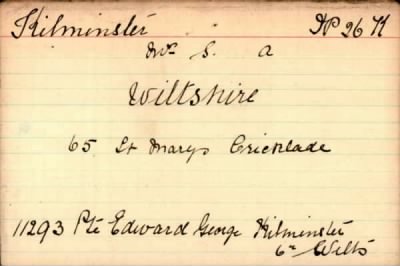 Kilminster DP 26 K
Mr S. a
Wiltshire
65 St Marys Cricklade
11293 Pte Edward George Kilminster
6th Wilts